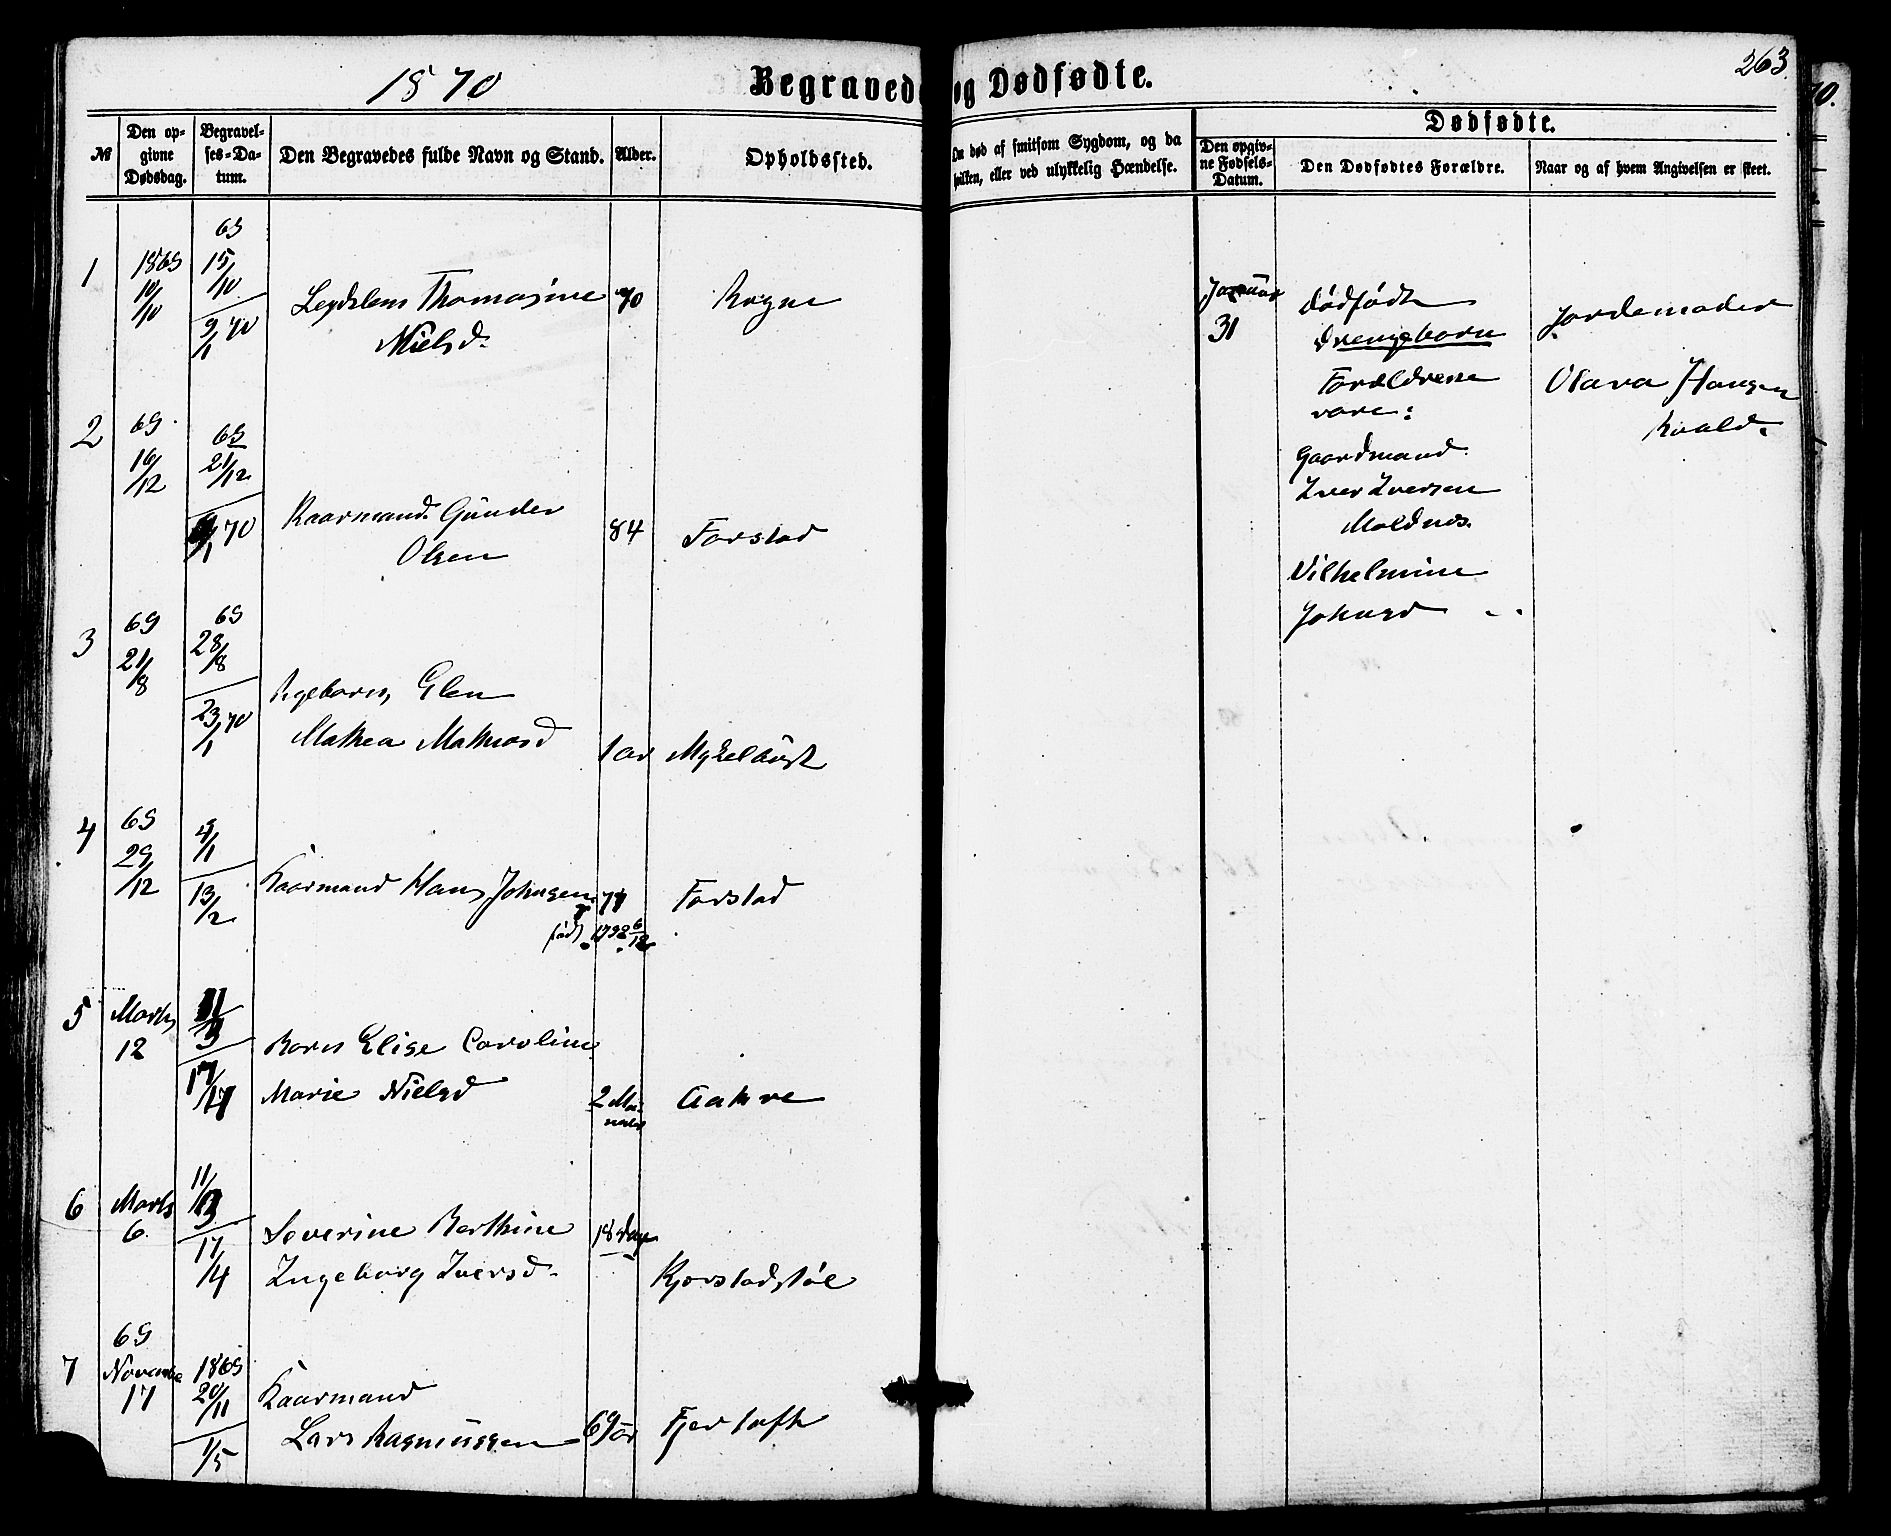 1870
Begravede og Dødfødte.
263.
№
Den op-
givne
Dødsdag.
Begravel-
ses-Da-
tum.
Den Begravedes fulde Navn og Stand.
Alder.
Opholdssted.
Om død af smitsom Sygdom, og da
hvilken, eller ved ulykkelig Hændelse.
Dødfødte.
Den opgiv-
ne Fødsels-
Datum.
Den Dødfødtes Forældre.
Naar og af hvem Angivelsen er skeet.
1
1869
10/10
69
15/10
9/1 70
Thomasine
Nielsd.
70
Rogne
2
69
16/12
69
21/12
9/1 70
Kaarmand Gunder
Olsen
84
Farstad
3
69
21/8
69
28/8
23/1 70
Pigebarn, Elen
Mathea Mathiasd
1 aar
Myklebust
4
69
29/12
4/1
13/2
Kaarmand Hans Johnsen
77
Farstad
født 1792 6/12
5
Marts
12
17/4
Barn Elise Caroline
Marie Nielsd
2 Maa-
neder
Aakre
6
Marts
6
11/3
17/4
Severine Berthine
Ingeborg Iversd.
18 Dage
Kjerstadstøl
7
69
November
17
1869
20/11
1/5
Kaarmand
Lars Rasmussen
69 aar
Fjertoft
Januar
31
Dødfødt
Drengebarn
Forældrene
vare:
Gaardmand
Iver Iversen
Moldnes.
Vilhelmine
Johnsd
Jordemoder
Olava Hansen